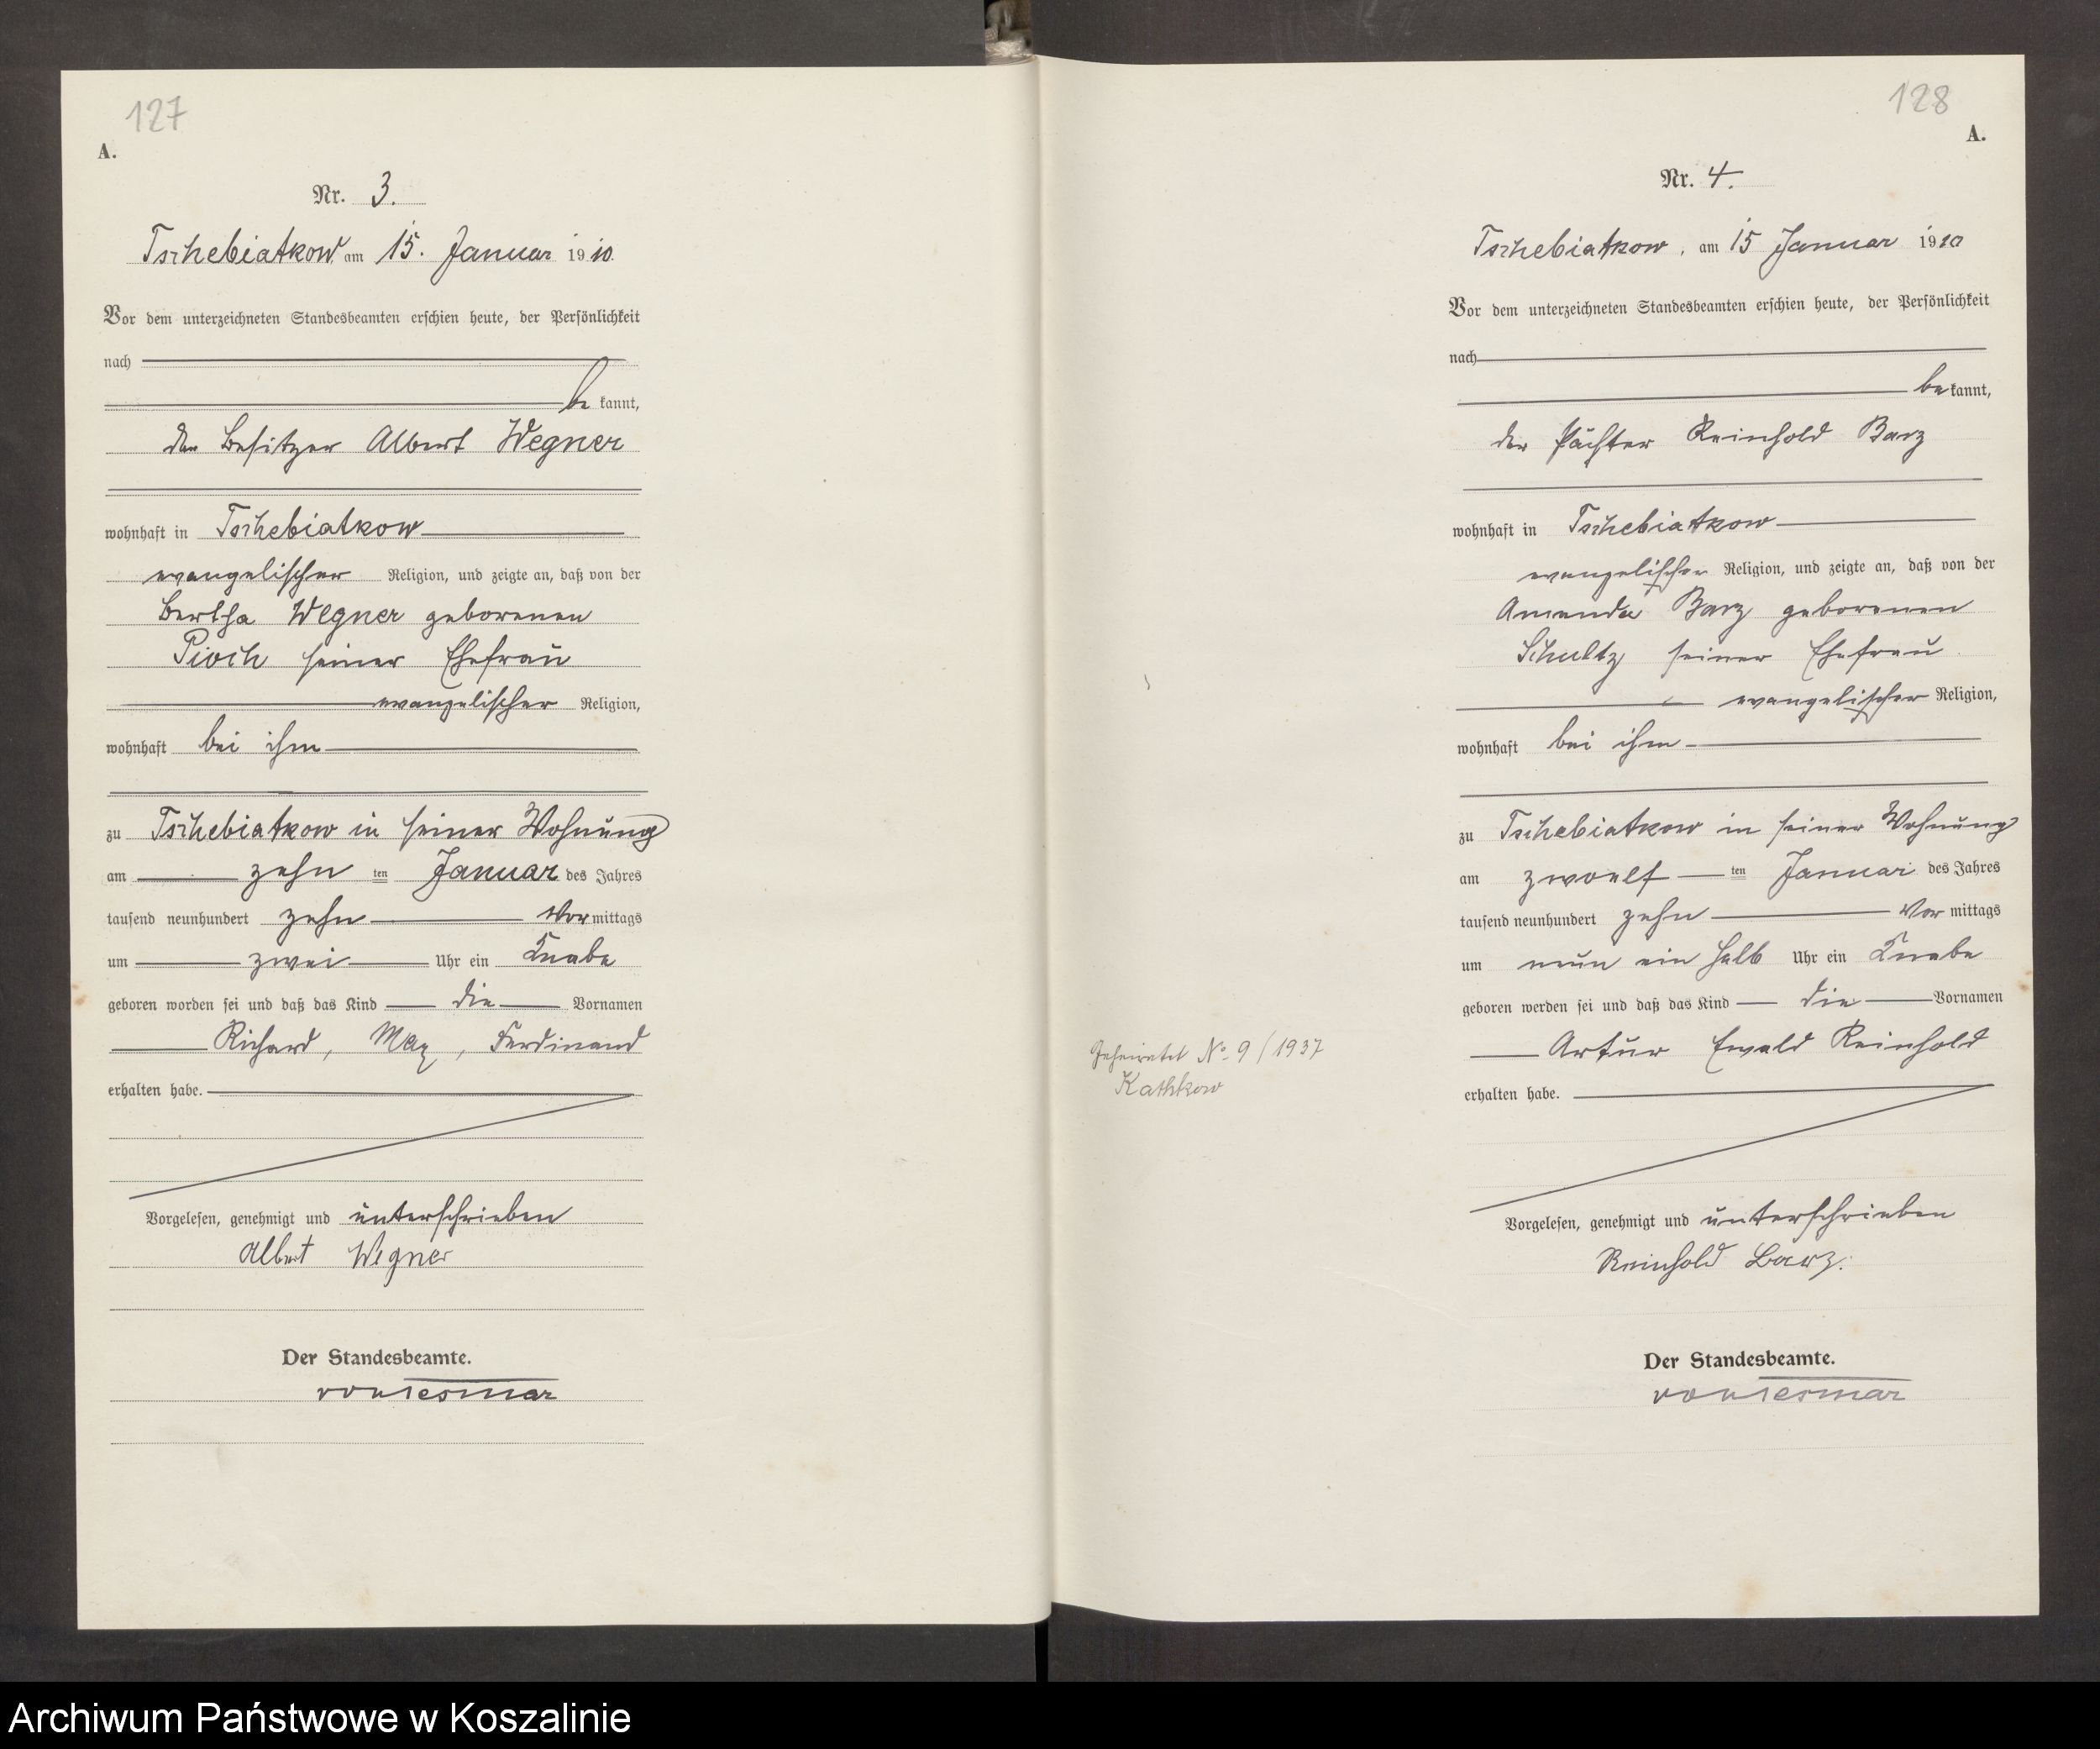 127
A.
Nr. 3.
Tschebiatkow, am 15. Januar 1910.
Vor dem unterzeichneten Standesbeamten erschien heute, der Persönlichkeit
nach
be kannt,
der Besitzer Albert Wegner
wohnhaft in Tschebiatkow
evangelischer Religion, und zeigte an, daß von der
Bertha Wegner geborenen
Pioch seiner Ehefrau
evangelischer Religion,
wohnhaft bei ihm
zu Tschebiatkow in seiner Wohnung
am zehn ten Januar des Jahres
tausend neunhundert zehn Vor mittags
um zwei Uhr ein Knabe
geboren worden sei und daß das Kind die Vornamen
Richard, Max, Ferdinand
erhalten habe.
Vorgelesen, genehmigt und unterschrieben
Albert Wegner
Der Standesbeamte.
128
A.
Nr. 4.
Tschebiatkow, am 15 Januar 1910
Vor dem unterzeichneten Standesbeamten erschien heute, der Persönlichkeit
nach
be kannt,
der Pächter Reinhold Barz
wohnhaft in Tschebiatkow
evangelischer Religion, und zeigte an, daß von der
Amanda Barz geborenen
Schultz seiner Ehefrau
evangelischer Religion,
wohnhaft bei ihm
zu Tschebiatkow in seiner Wohnung
am zwoelf ten Januar des Jahres
tausend neunhundert zehn Vor mittags
um neun ein halb Uhr ein Knabe
geboren werden sei und daß das Kind die Vornamen
Artur Ewald Reinhold
erhalten habe.
Geheiratet No. 9/1937
Kathkow
Vorgelesen, genehmigt und unterschrieben
Reinhold Barz.
Der Standesbeamte.
Archiwum Państwowe w Koszalinie